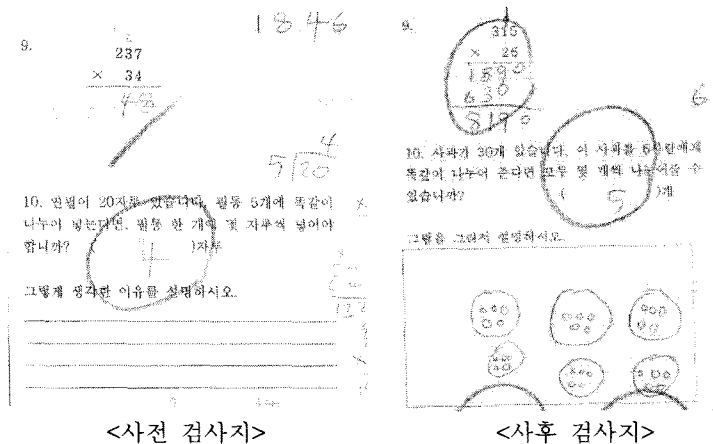 18.46
9.
237
× 34
5)20
4
10. 연필이 20자루 있습니다. 필통 5개에 똑같이
나누어 넣는다면, 필통 한 개에 몇 자루씩 넣어야
합니까? ( 4 )자루
그렇게 생각한 이유를 설명하시오.
<사전 검사지>
9.
315
× 26
1890
630
8190
6
10. 사과가 30개 있습니다. 이 사과를 6사람에게
똑같이 나누어 준다면 모두 몇 개씩 나누어줄 수
있습니까? ( 5 )개
그림을 그려서 설명하시오.
<사후 검사지>